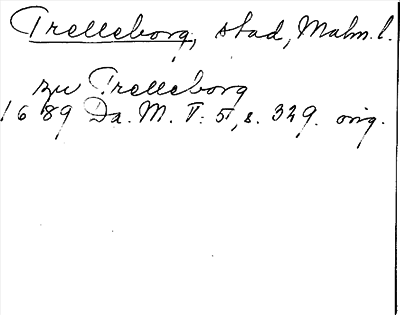 Trelleborg, stad, Malm. l.
zu Trelleborg
1689 Da. M. T: 5, s. 329. orig.